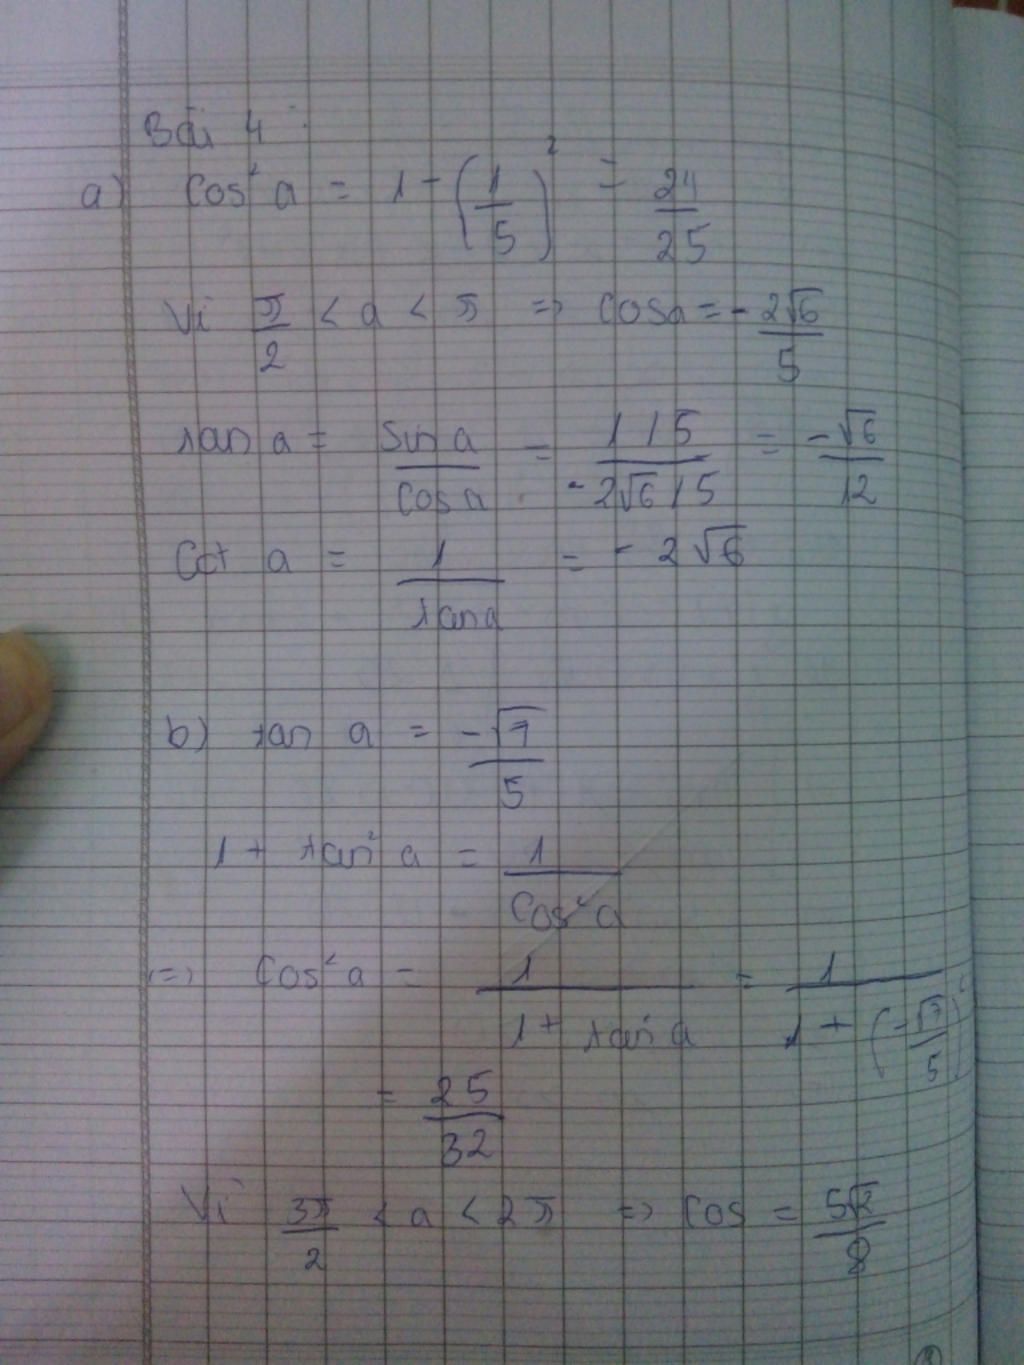 Bài 4 :
a) cos² a = 1 - (1/5)² = 24/25
Vì π/2 < a < π => cos a = - 2√6/5
tan a = sin a / cos a = 1/5 / -2√6/5 = -√6/12
Cot a = 1/tan a = - 2√6
b) tan a = -√7/5
1 + tan² a = 1/cos² a
=> cos² a = 1/(1 + tan² a) = 1/(1 + (-√7/5)²)
= 25/32
Vì 3π/2 < a < 2π => cos = 5√2/8